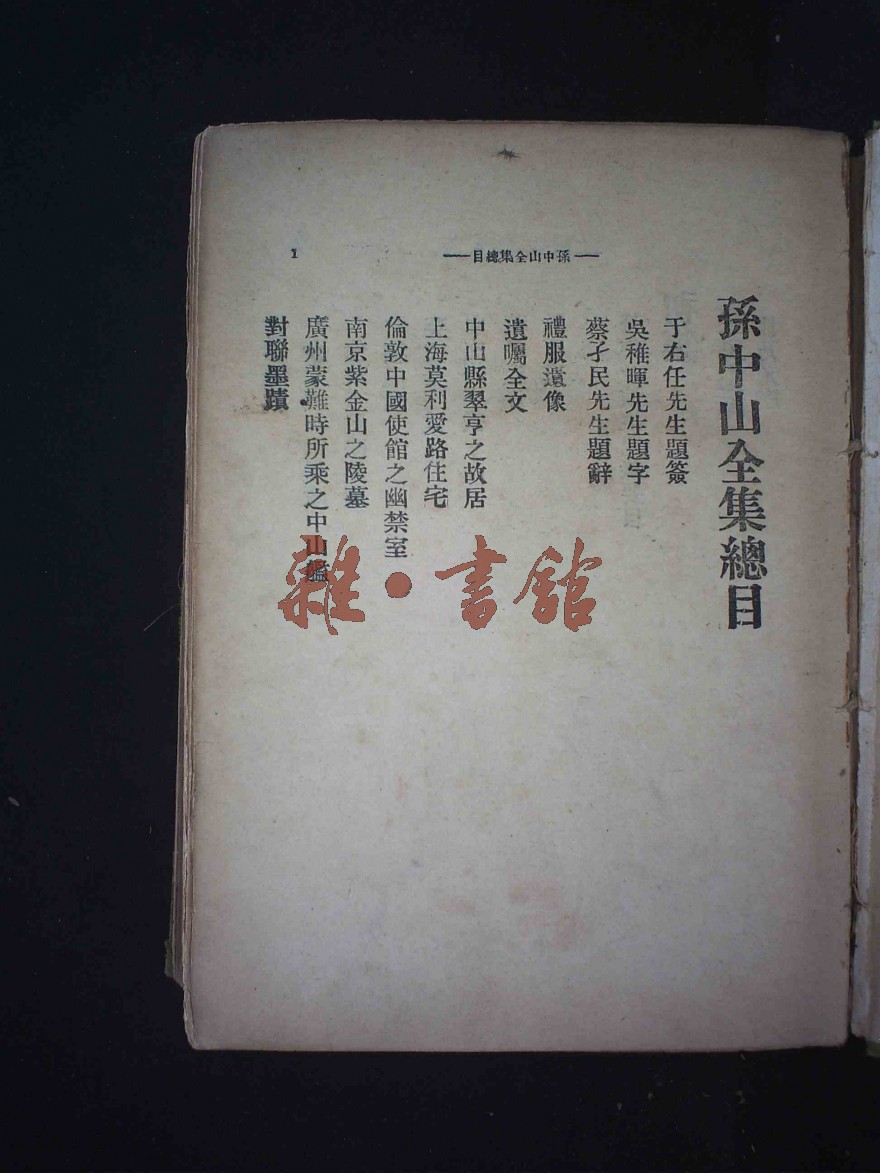 孫中山全集總目
1
孫中山全集總目
于右任先生題簽
吳稚暉先生題字
蔡孑民先生題辭
禮服遺像
遺囑全文
中山縣翠亨之故居
上海莫利愛路住宅
倫敦中國使館之幽禁室
南京紫金山之陵墓
廣州蒙難時所乘之中山艦
對聯墨蹟
雜·書舘